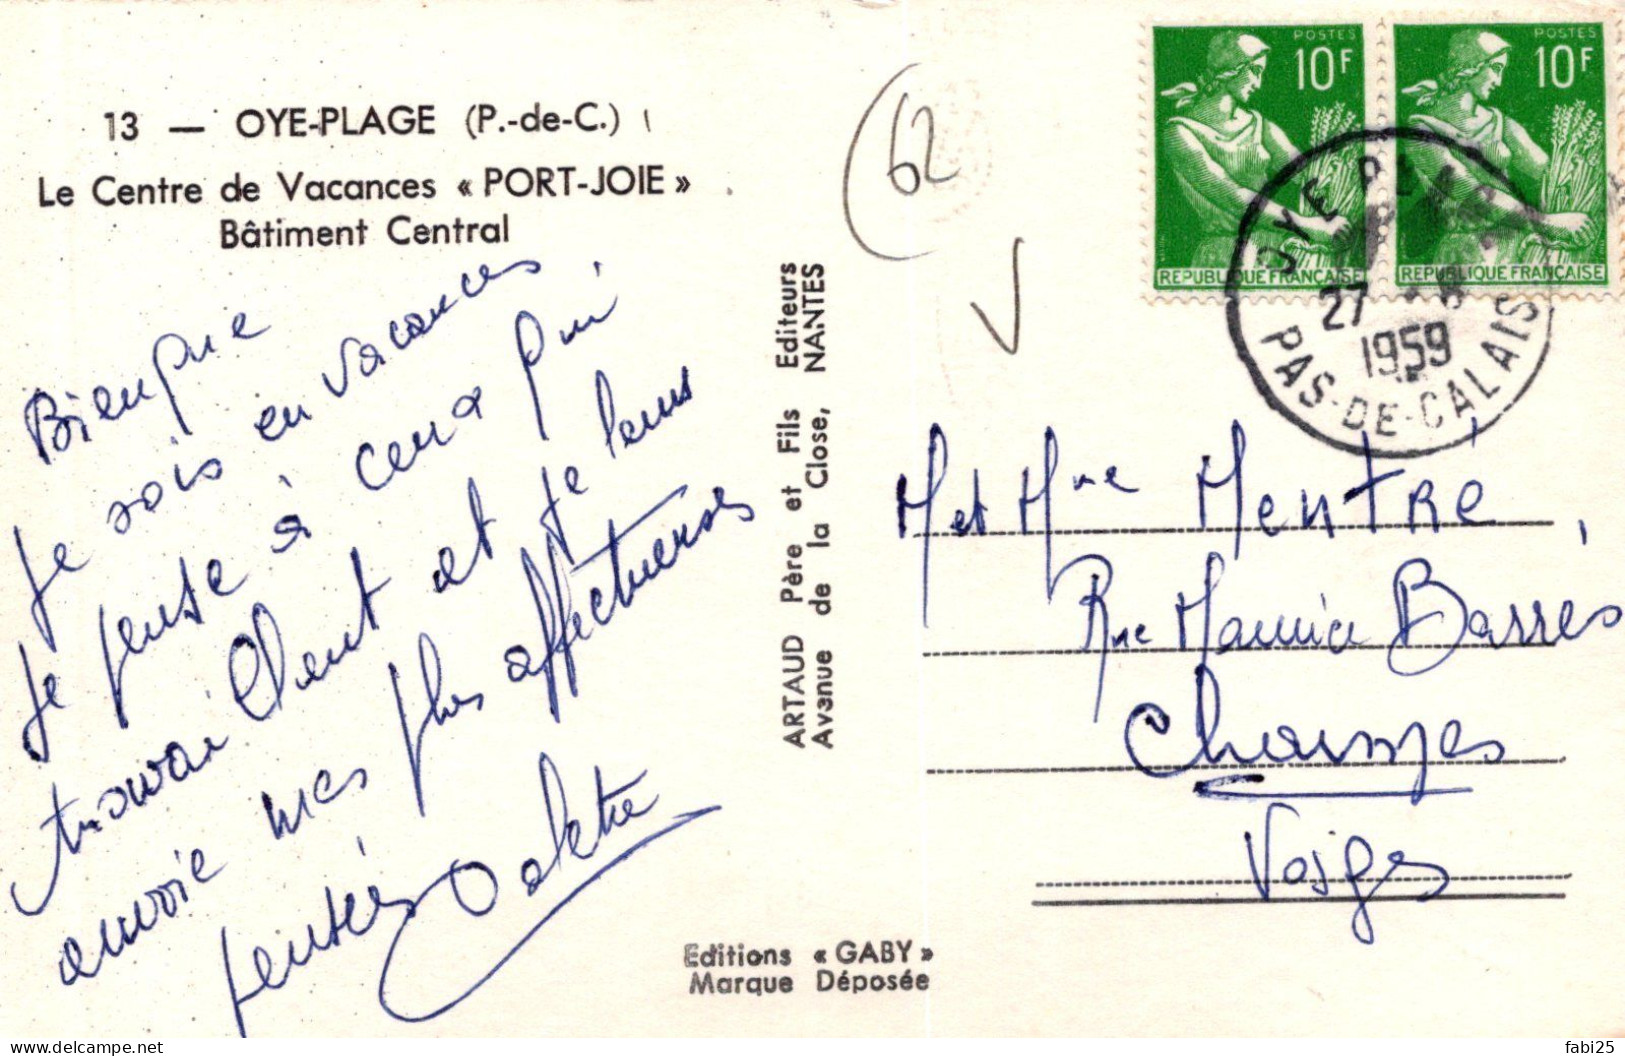 13 — OYE-PLAGE (P.-de-C.)
Le Centre de Vacances « PORT-JOIE »
Bâtiment Central
Bienque
Je sois en vacances
Je pense à ceux qui
travaillent et je leurs
envoie mes plus affectueuses
pensées
ARTAUD Père et Fils Editeurs
Avenue de la Close, NANTES
Editions « GABY »
Marque Déposée
62
POSTES
10F
REPUBLIQUE FRANÇAISE
POSTES
10F
REPUBLIQUE FRANÇAISE
OYE PLAGE
27
1959
PAS-DE-CALAIS
M et Mme Mentré
Rue Maurice Barrès
Charmes
Vosges
fabi25